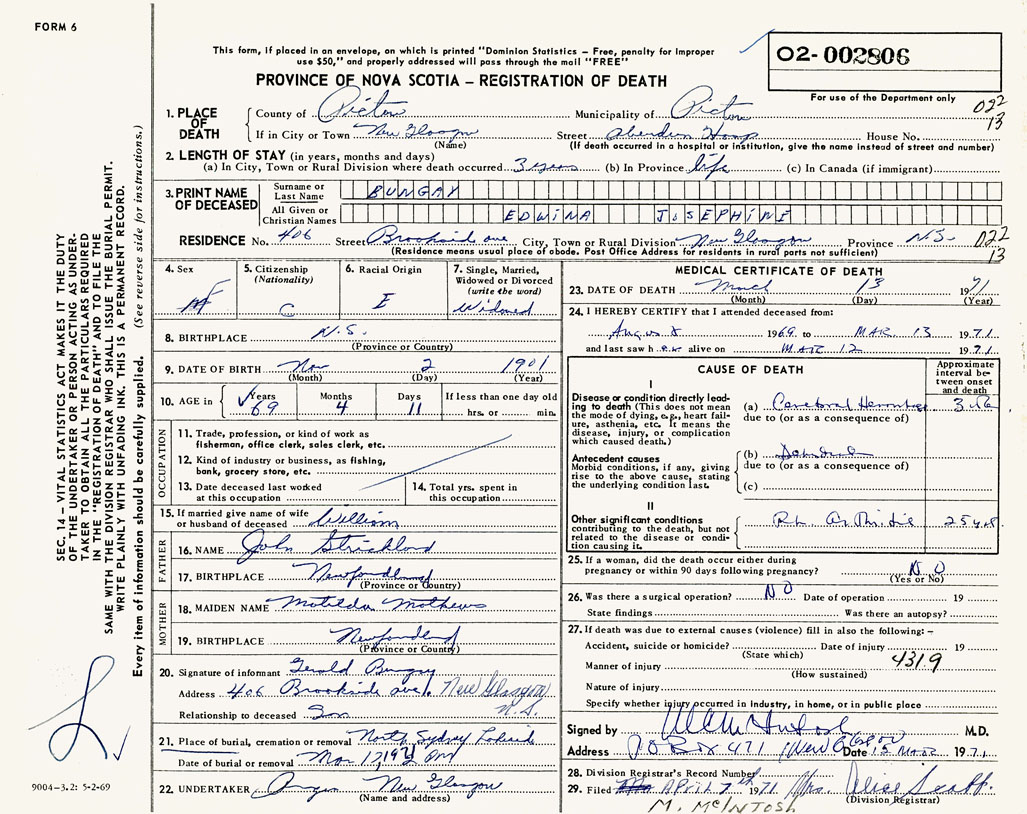 FORM 6
This form, if placed in an envelope, on which is printed "Dominion Statistics – Free, penalty for improper
use $50," and properly addressed will pass through the mail "FREE"
PROVINCE OF NOVA SCOTIA – REGISTRATION OF DEATH
02-002806
For use of the Department only
022
13
1. PLACE OF DEATH
County of Pictou Municipality of Pictou
If in City or Town New Glasgow Street Aberdeen Hosp House No.
(Name) (If death occurred in a hospital or institution, give the name instead of street and number)
2. LENGTH OF STAY (in years, months and days)
(a) In City, Town or Rural Division where death occurred 3 years (b) In Province life (c) In Canada (if immigrant)
3. PRINT NAME OF DECEASED
Surname or Last Name BUNGAY
All Given or Christian Names EDWINA JOSEPHINE
RESIDENCE No. 406 Street Brookside ave City, Town or Rural Division New Glasgow Province N.S. 022
(Residence means usual place of obode. Post Office Address for residents in rural parts not sufficient) 13
4. Sex F
5. Citizenship (Nationality) C
6. Racial Origin E
7. Single, Married, Widowed or Divorced (write the word) Widowed
8. BIRTHPLACE N.S.
(Province or Country)
9. DATE OF BIRTH Nov 2 1901
(Month) (Day) (Year)
10. AGE in Years 69 Months 4 Days 11 If less than one day old hrs. or min.
OCCUPATION
11. Trade, profession, or kind of work as
fisherman, office clerk, sales clerk, etc.
12. Kind of industry or business, as fishing,
bank, grocery store, etc.
13. Date deceased last worked
at this occupation
14. Total yrs. spent in
this occupation
15. If married give name of wife
or husband of deceased William
FATHER
16. NAME John Strickland
17. BIRTHPLACE Newfoundland
(Province or Country)
MOTHER
18. MAIDEN NAME Matilda Mathews
19. BIRTHPLACE Newfoundland
(Province or Country)
20. Signature of informant Gerald Bungay
Address 406 Brookside ave. New Glasgow
N.S.
Relationship to deceased Son
21. Place of burial, cremation or removal North Sydney
Date of burial or removal Mar 17, 1971
22. UNDERTAKER New Glasgow
(Name and address)
MEDICAL CERTIFICATE OF DEATH
23. DATE OF DEATH March 13 1971
(Month) (Day) (Year)
24. I HEREBY CERTIFY that I attended deceased from:
August 1969 to MAR 13 1971
and last saw her alive on MAR 12 1971
CAUSE OF DEATH
Approximate interval between onset and death
I
Disease or condition directly leading to death (This does not
the mode of dying, e.g., heart failure, asthenia, etc. It means the
disease, injury, or complication
which caused death.)
(a) Cerebral Hemorrhage
due to (or as a consequence of)
Antecedent causes
Morbid conditions, if any, giving
rise to the above cause, stating
the underlying condition last.
(b)
due to (or as a consequence of)
(c)
II
Other significant conditions
contributing to the death, but not
related to the disease or condition causing it.
Rh. Arthritis 25 yrs
25. If a woman, did the death occur either during
pregnancy or within 90 days following pregnancy? NO
(Yes or No)
26. Was there a surgical operation? NO Date of operation 19
State findings Was there an autopsy?
27. If death was due to external causes (violence) fill in also the following: –
Accident, suicide or homicide? Date of injury 19
(State which) 4319
Manner of injury
(How sustained)
Nature of injury
Specify whether injury occurred in industry, in home, or in public place
Signed by M.D.
Address P O Box 471 New Glasgow Date 15 MAR 1971
28. Division Registrar's Record Number
29. Filed APRIL 7th 1971 Mrs. Alice Scott
(Division Registrar)
M. McINTOSH
SEC. 14 – VITAL STATISTICS ACT MAKES IT THE DUTY
OF THE UNDERTAKER OR PERSON ACTING AS UNDER-
TAKER TO OBTAIN ALL THE PARTICULARS REQUIRED
IN THE "REGISTRATION OF DEATH" AND TO FILE THE
SAME WITH THE DIVISION REGISTRAR WHO SHALL ISSUE THE BURIAL PERMIT.
WRITE PLAINLY WITH UNFADING INK. THIS IS A PERMANENT RECORD.
Every item of information should be carefully supplied. (See reverse side for instructions.)
9004-3.2: 5-2-69